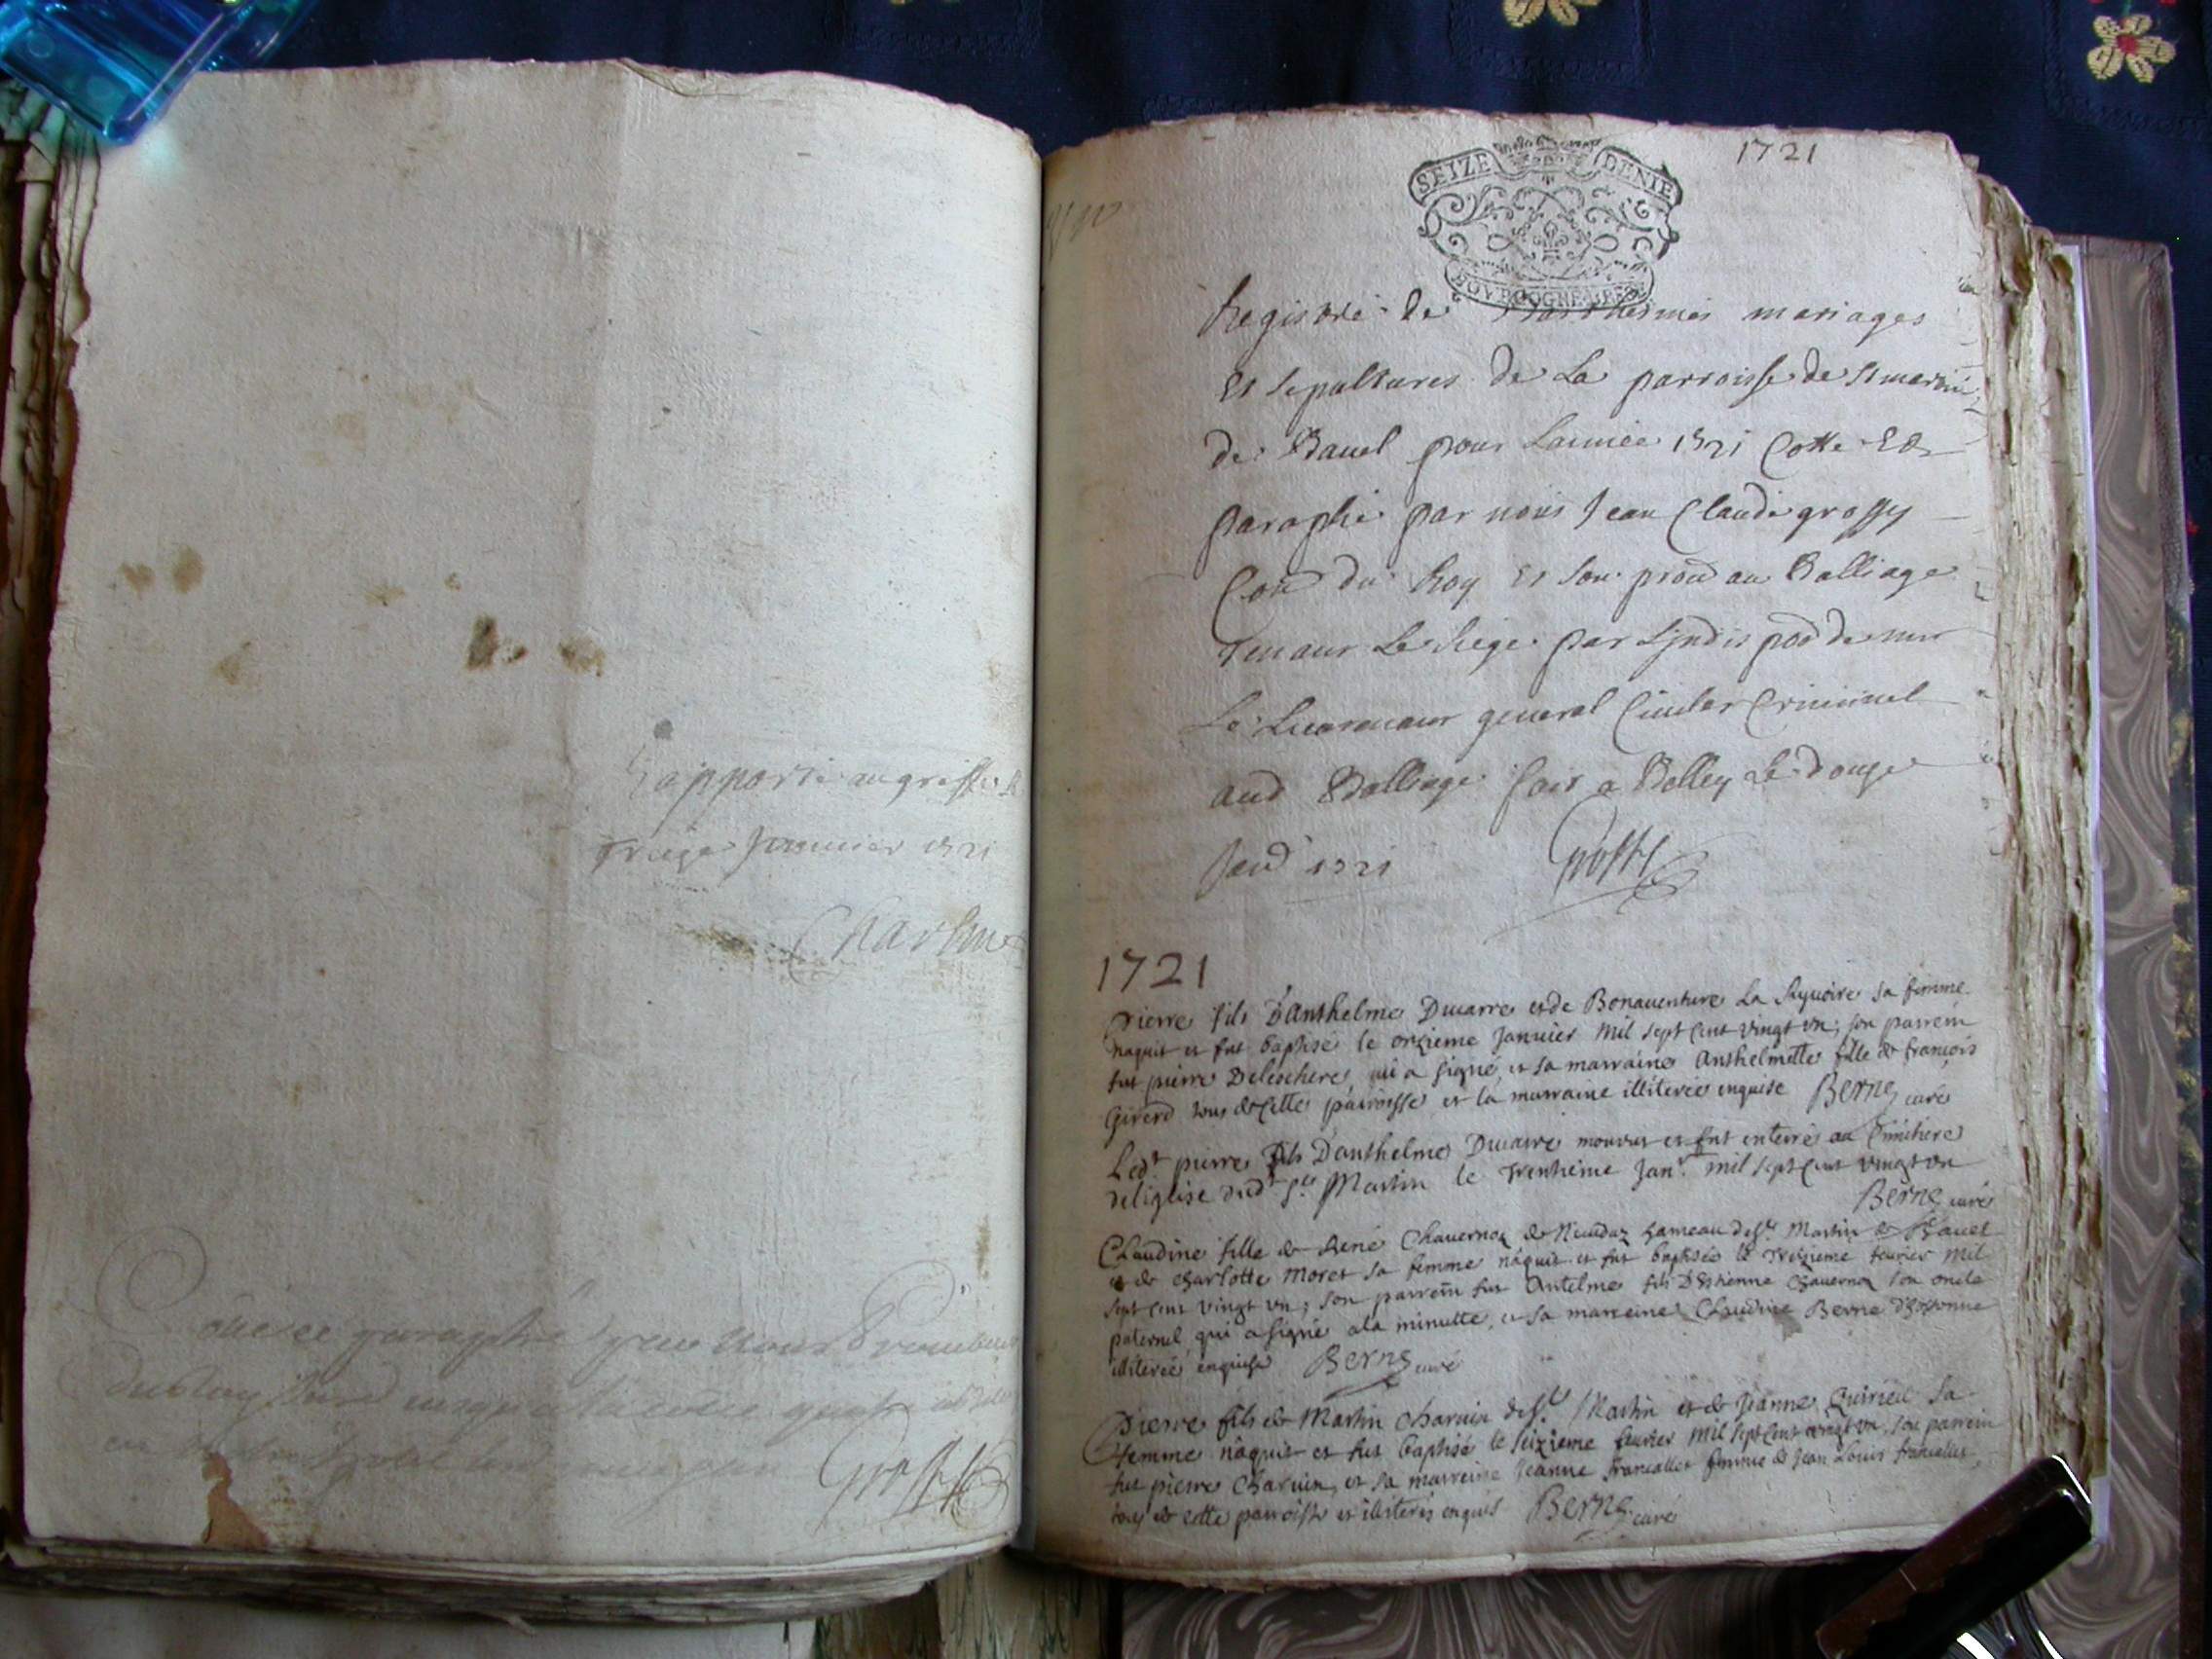 Rapporté au greffe le
Treize Janvier 1721
Cotté et paraphé par nous
du Roy
Grossy
1721
SEIZE DENIE
BOVRGOGNE BRESSE
Registre de Baptesmes mariages
Et sepultures de La parroisse de St martin
de Bauel pour Lannée 1721 Cotte Et
paraphé par nous Jean Claude grossy
Con du Roy Et son procu au Balliage
Tenant Le siege par Lindispon de mr
Le Lieutenant general Ciuil et Criminel
aud Balliage fait a Belley Le douze
Janr 1721 Grossy
1721
Pierre fils D'Anthelme Ducarre et de Bonauenture La Ryuoire sa femme
naquit et fut baptisé le onzieme Januier mil sept cent vingt vn; son parrein
fut pierre Delaschere, qui a signé, et sa marraine Anthelmette fille de françois
Girerd tous de cette parroisse et la marraine illiterée enquise Berne curé
Ledt pierre fils D'anthelme Ducarre mourut et fut enterré au Cimithere
de l'eglise dudt St Martin le Trentieme Janr mil sept cent vingt vn
Berne curé
Claudine fille de René Chauernoz de hameau de St Martin de Bauel
et de Charlotte Moret sa femme náquit et fut baptisée le Treizieme feurier mil
sept cent vingt vn; son parrein fut Antelme fils D'Estienne Chauernoz son oncle
paternel qui a signé a la minutte, et sa marreine Claudine Berne
illiterée enquise Berne curé
Pierre fils de Martin Charuin de St Martin et de Jeanne sa
femme náquit et fut baptisé le seizieme feurier mil sept cent vingt vn, son parrein
fut pierre Charuin, et sa marreine Jeanne femme de Jean Louis
tous de cette parroisse et illiterés enquis Berne curé